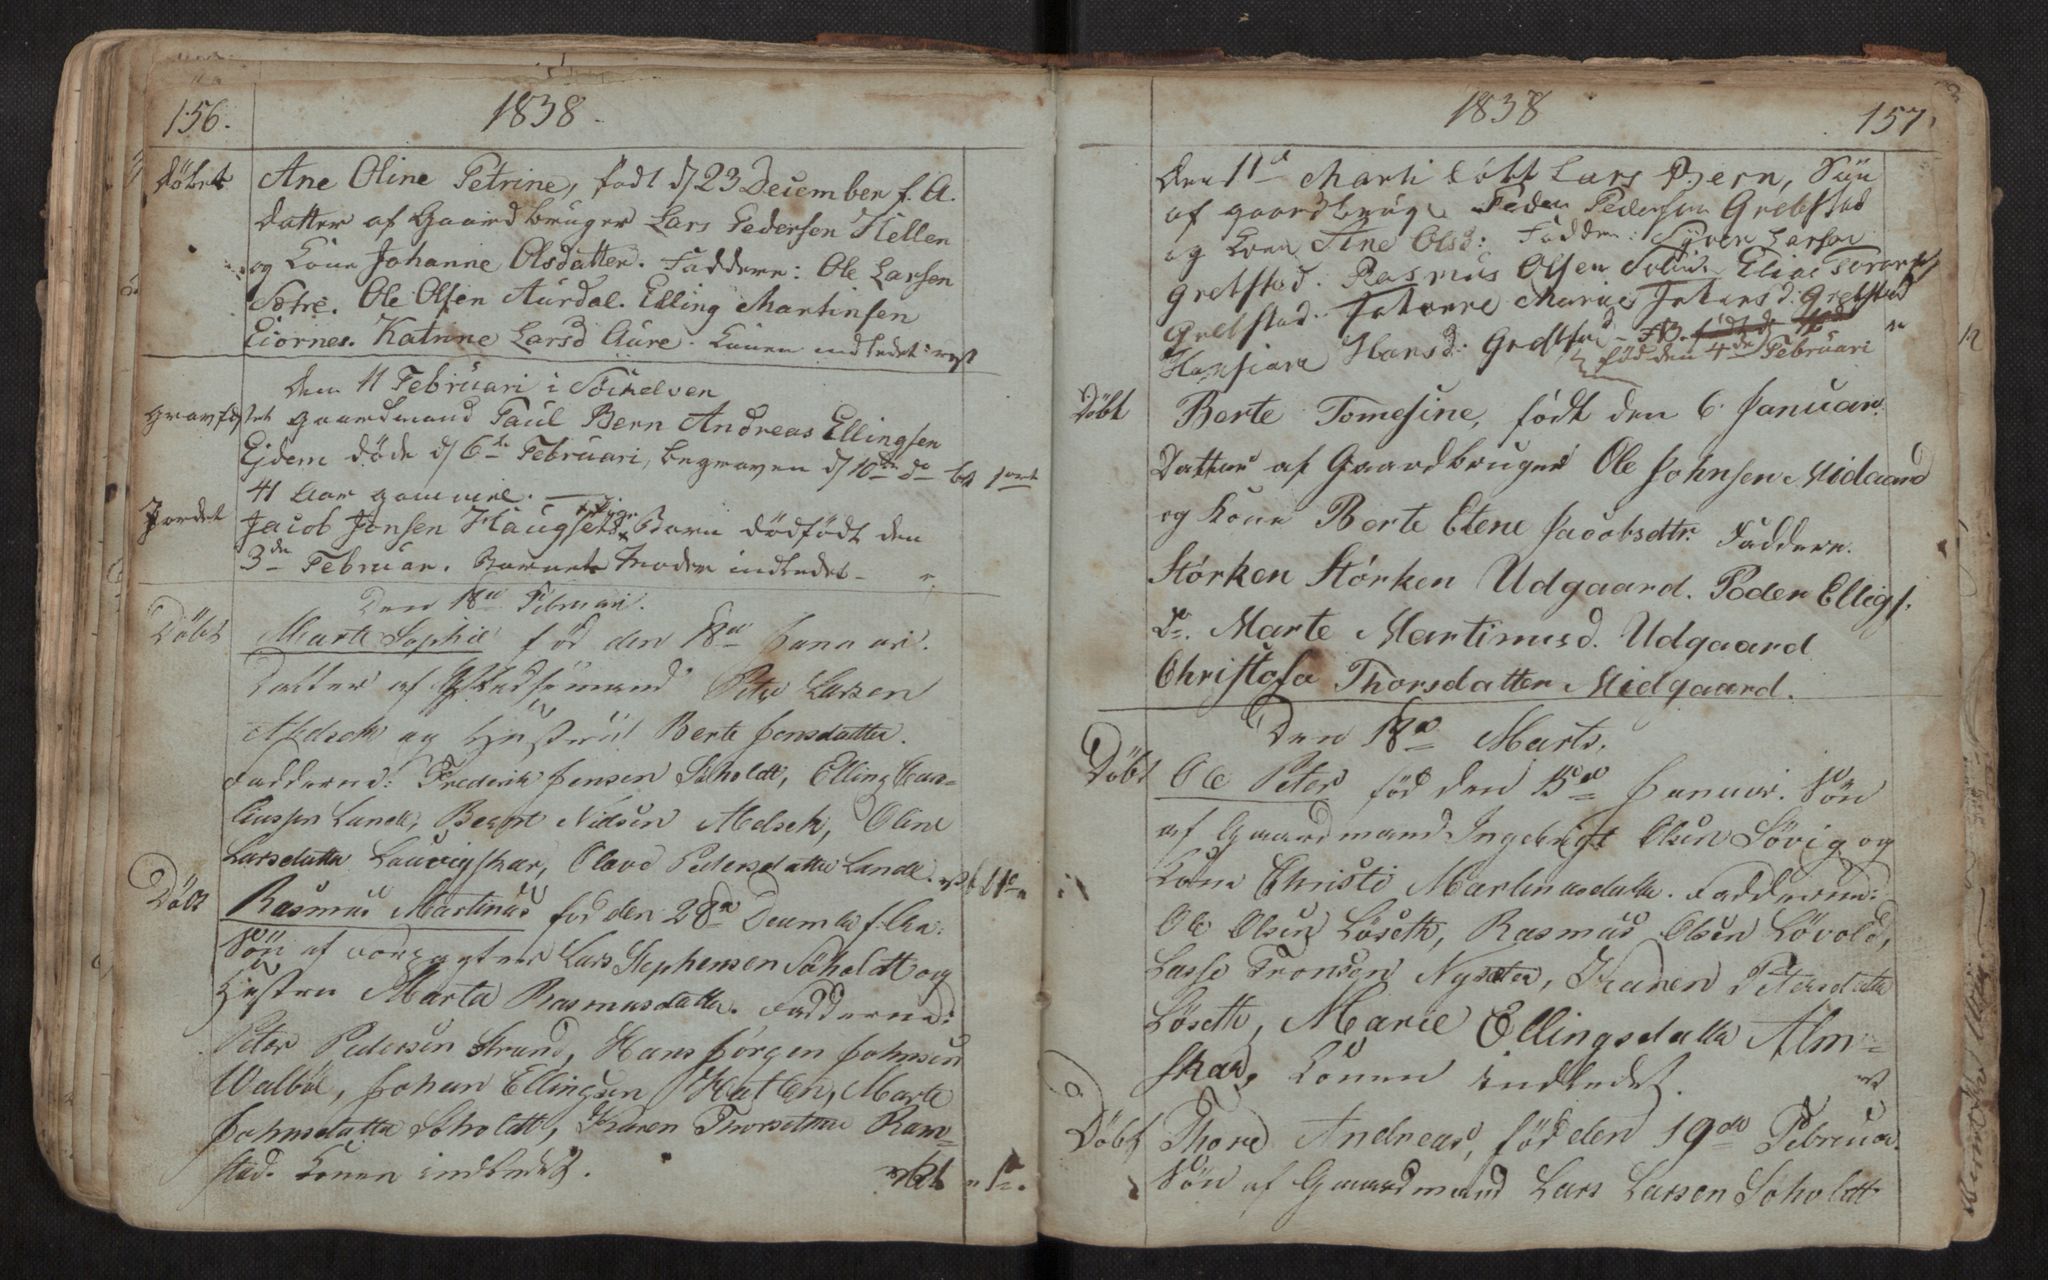 156. 1838
Döbet Ane Oline Petrine, födt d/ 23 December f. A.
Datter af Gaardbruger Lars Pedersen Hellen
og Kone Johanne Olsdatter. Faddere: Ole Larsen
Sætre. Ole Olsen Aurdal. Elling Martinsen
Eiornes. Katrine Larsd Aure. Konen indledet
Den 11 Februari i
Gravfæstet Gaardmand Paul Bern Andreas Ellingsen
Ejdem döde d/ 6te Februari, begraven d/ 10de do
41 Aar gammel.
Jordet Jacob Jonsen Barn dödfödt den
3de Februar. Barnets Moder indledet
Den 18de Februari.
Döbt Marte Sophie föd den 18de Januari.
Datter af Peter Larsen
og Hustru Berte Jonsdatter.
Fadderne: Frederik Jensen Soholdt, Elling
Lande, Bernt Nielsen Oline
Larsdatter Lauvigskar, Pedersdatter Lande.
Döbt Rasmus Martinus föd den 28de Decembr f. Aar
Sön af Lars Stephensen Soholdt og
Hustru Marta Rasmusdatter. Fadderne:
Peter Pedersen Strand, Hans Jörgen Johnsen
Walböe, Johan Ellingsen Hatlen, Marte
Johnsdatter Soholdt, Karen Ram-
stad. Konen indledet.
1838 157
Den 11te Marti döbt Lars Bern, Sön
af gaardbruger Peder Pedersen Grebstad
og Kone Ane Olsd: Fadder: Lars
Grebstad. Rasmus Olsen Elias
Grebstad. Marie Grebstad
Hansd: Grebstad NB. födt d
föd den 4de Februari
Döbt Berte Tomesine, födt den 6 Januar
Datter af Gaardbruger Ole Johnsen Midgaard
og Kone Berte Elene Jacobsdtr. Faddere.
Störken Störken Udgaard. Peder Ellings.
Do. Marte Martinusd. Udgaard
Christofa Thorsdatter Midgaard.
Den 18de Marts.
Döbt Ole Peter föd den 15de Januar. Sön
af Gaardmand Ingebrigt Olsen Sövig og
Kone Christi Martinusdatter. Fadderne:
Ole Olsen Löseth, Rasmus Olsen Lövold,
Lasse Tronsen Nysæter, Karen Petersdatter
Löseth, Marie Ellingsdatter Alm-
skar, Konen indledet.
Döbt Thore Andreas, föd den 19de Februar
Sön af Gaardmand Lars Larsen Soholdt